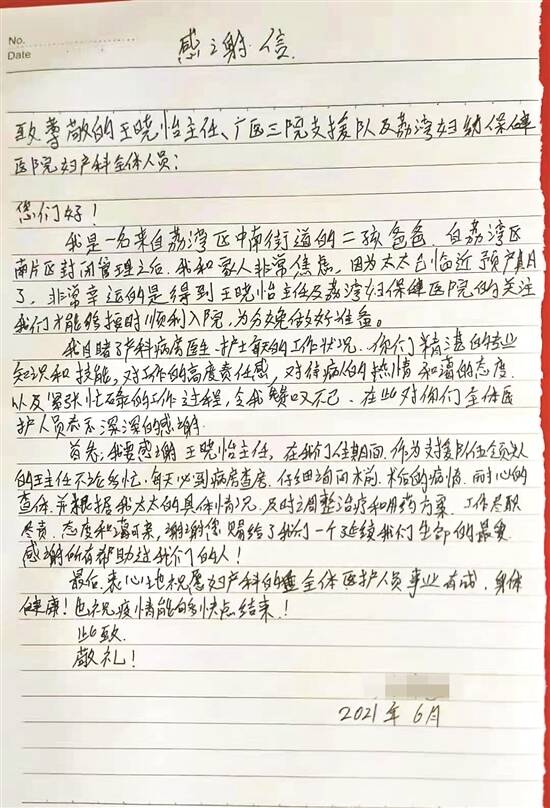 No.
Date
感谢信
致尊敬的王晓怡主任、广医三院支援队及荔湾妇幼保健
医院妇产科全体人员：
您们好！
我是一名来自荔湾区中南街道的二孩爸爸，自荔湾区
南片区封闭管理之后，我和家人非常焦虑，因为太太已临近预产期
了，非常幸运的是得到王晓怡主任及荔湾妇保健医院的关注
我们才能够按时顺利入院，为分娩做好准备。
我目睹了产科病房医生、护士每天的工作状况，你们精湛的专业
知识和技能，对工作的高度责任感，对待病人的热情和蔼的态度
以及紧张忙碌的工作过程，令我赞叹不已，在此对你们全体医
护人员表示深深的感谢。
首先，我要感谢王晓怡主任，在我们住期间，作为支援队伍负责人
的王主任不论多忙，每天必到病房查房，仔细询问术前、术后的病情，耐心的
查体，并根据我太太的具体情况，及时调整治疗和用药方案，工作尽职
尽责，态度和蔼可亲，谢谢您 赐给了我们一个延续我们生命的最爱
感谢所有帮助过我们的人！
最后，衷心地祝愿妇产科的全体医护人员事业有成，身体
健康！也祝疫情能够快点结束！
此致
敬礼！
2021年6月